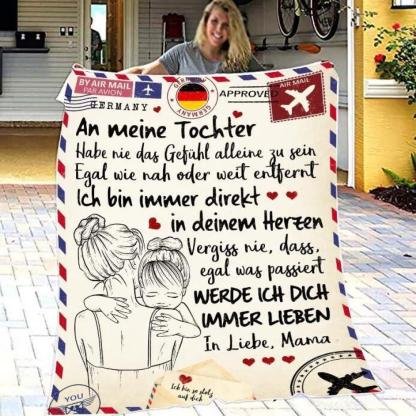 BY AIR MAIL
PAR AVION
GERMANY
GERMANY
GERMANY
APPROVED
AIR MAIL
An meine Tochter
Habe nie das Gefühl alleine zu sein
Egal wie nah oder weit entfernt
Ich bin immer direkt
in deinem Herzen
Vergiss nie, dass,
egal was passiert
WERDE ICH DICH
IMMER LIEBEN
In Liebe, Mama
Ich bin so stolz
auf dich
YOU